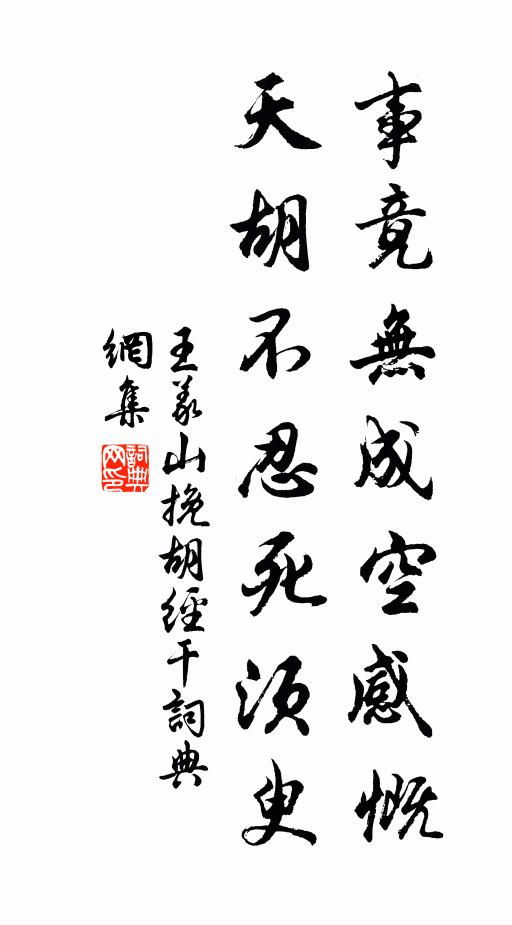 事竟無成空感慨
天胡不忍死須臾
王義山挽胡經干詞典
網集
詞典網印